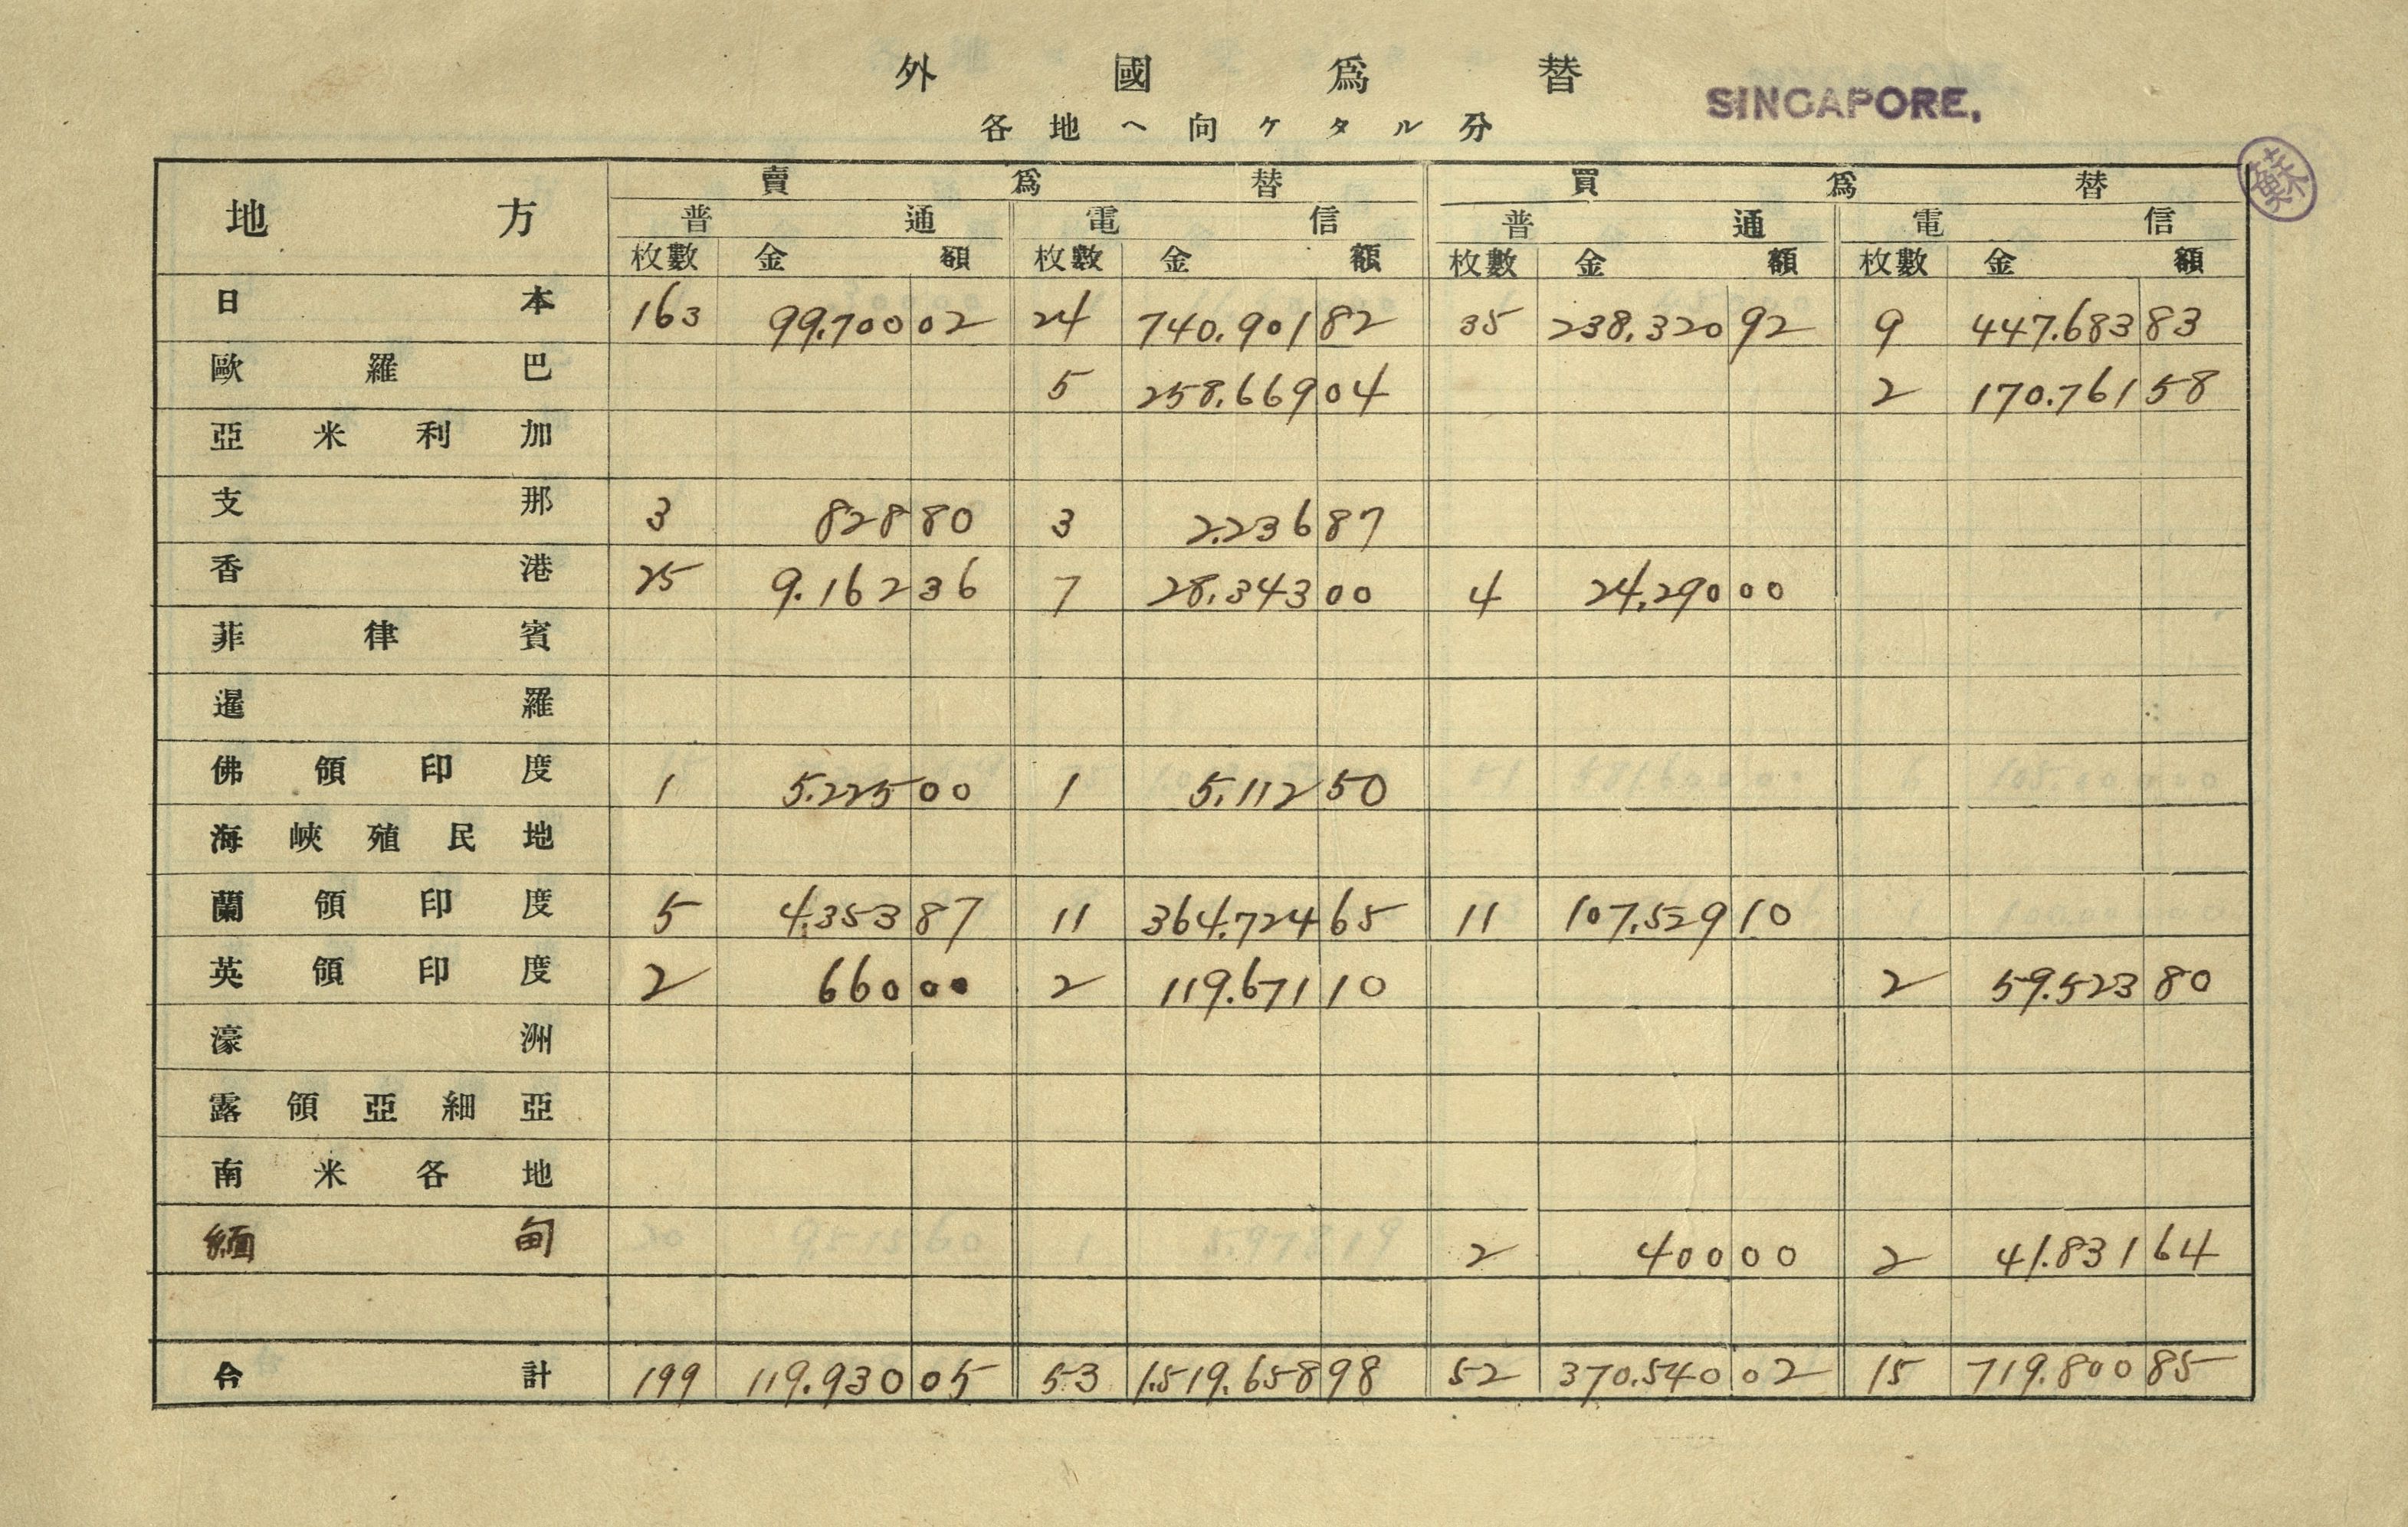 外國爲替
SINGAPORE,
各地ヘ向ケタル分
蘇
地方 賣爲替 買爲替
普通 電信 普通 電信
枚數 金額 枚數 金額 枚數 金額 枚數 金額
日本 163 99.700 02 24 740.901 82 35 238.320 92 9 447.683 83
歐羅巴 5 258.669 04 2 170.761 58
亞米利加
支那 3 828 80 3 2.236 87
香港 25 9.162 36 7 28.343 00 4 24.290 00
菲律賓
暹羅
佛領印度 1 5.225 00 1 5.112 50
海峽殖民地
蘭領印度 5 4.353 87 11 364.724 65 11 107.529 10
英領印度 2 660 00 2 119.671 10 2 59.523 80
濠洲
露領亞細亞
南米各地
緬甸 2 400 00 2 41.831 64
合計 199 119.930 05 53 1.519.658 98 52 370.540 02 15 719.800 85